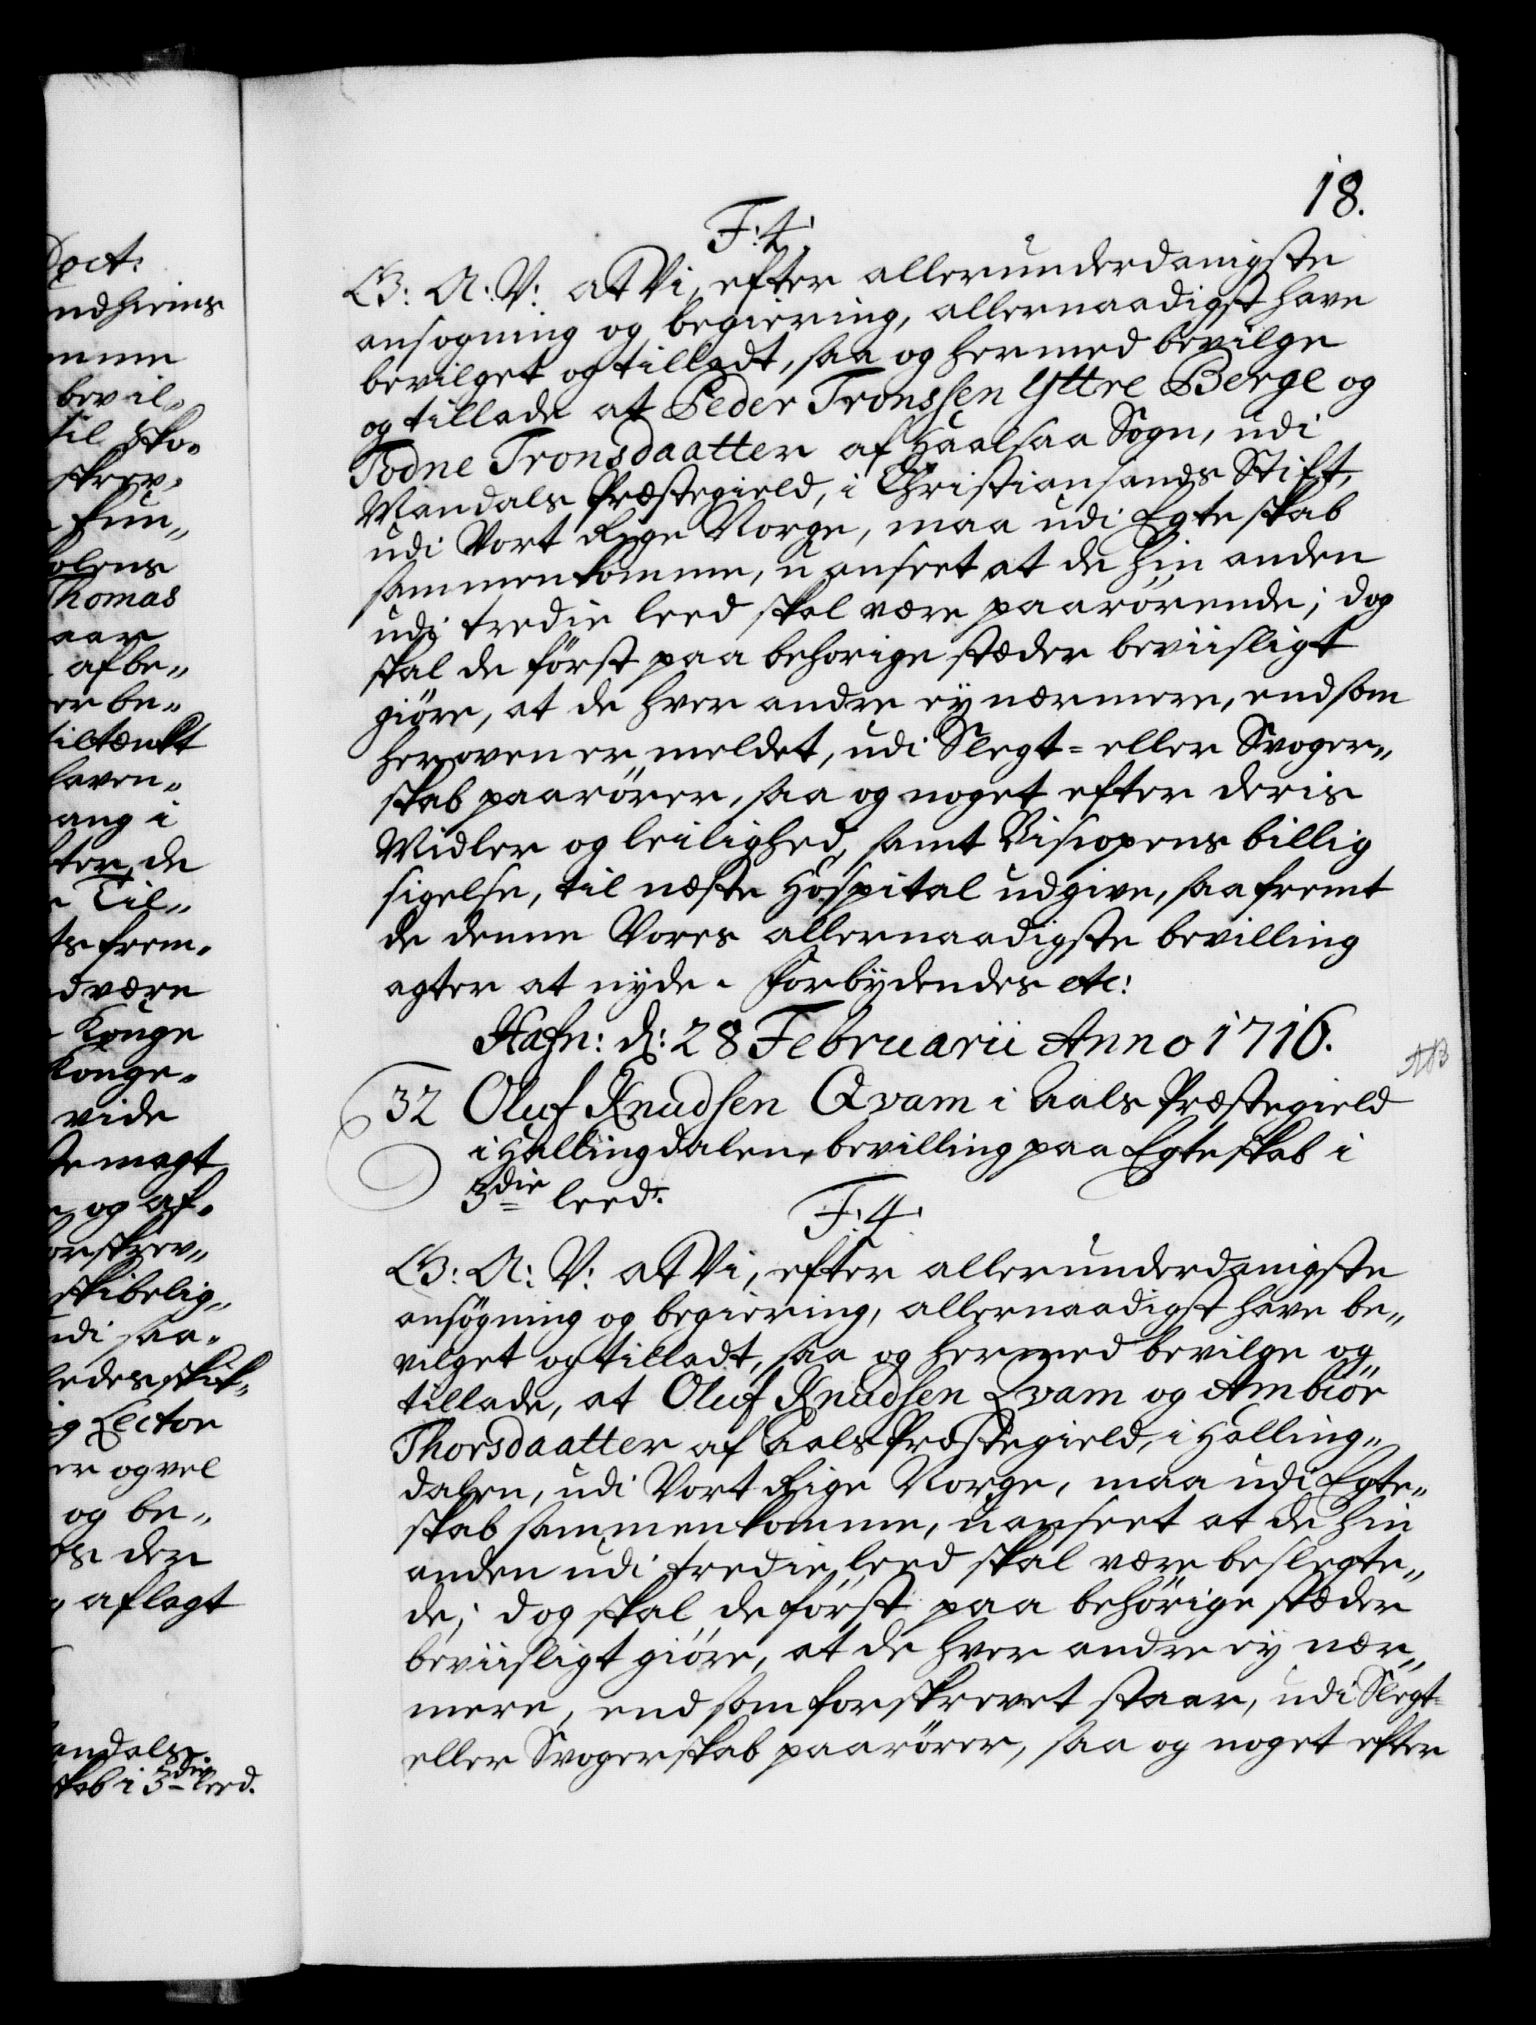 Doct:
ndhiems
mme
bevil„
til Sko„
skrev„
fun„
olens
Thomas
aar
afbe„
er be„
tiltænkt
laven„
ang i
ter, de
Til„
ts frem„
d være
Konge
Konge„
vide
te magt
og af„
orskrev„
skibelig„
udi saa„
ledes skik„
g Lector
er og vel
og be„
ts der
aflagt
andals
skab i 3die leed.
18.
F:4:
G: A: V: at Vi, efter allerunderdanigste
ansøgning og begiering, allernaadigst have
bevilget og tilladt, saa og hermed bevilge
og tillade at Peder Tronssen Yttre Berge og
Todne Tronsdaatter af Haalsaa Sogn, udi
Mandals Præstegield, i Christiansands Stift,
udi Vort Rige Norge, maa udi Egteskab
sammenkomme, uanseet at de hin anden
udi tredie leed skal være paarørende; dog
skal de først paa behørige stæder beviisligt
giøre, at de hver andre ey nærmere, end som
her oven er meldet, udi Slegt= eller Svoger„
skab paarører, saa og noget efter deris
Midler og leilighed, samt Bispens billig
sigelse, til næste Hospital udgive, saafremt
de denne Vores allernaadigste bevilling
agter at nyde. Forbydendes etc:
Hafn: d: 28 Februarii Anno 1716.
32 Oluf Knudsen Qvam i Aals Præstegield
i Hallingdalen, bevilling paa Egteskab i
3die leed.
F:4:
G: A: V: at Vi, efter allerunderdanigste
ansøgning og begiering, allernaadigst have be„
vilget og tilladt, saa og hermed bevilge og
tillade, at Oluf Knudsen Qvam og Ambiør
Thorsdaatter af Aals Præstegield, i Halling„
dalen, udi Vort Rige Norge, maa udi Egte„
skab sammenkomme, uanseet at de hin
anden udi tredie leed skal være beslegte„
de; dog skal de først paa behørige stæder
beviisligt giøre, at de hver andre ey nær„
mere, end som forskrevet staar, udi Slegt=
eller Svogerskab paarører, saa og noget efter